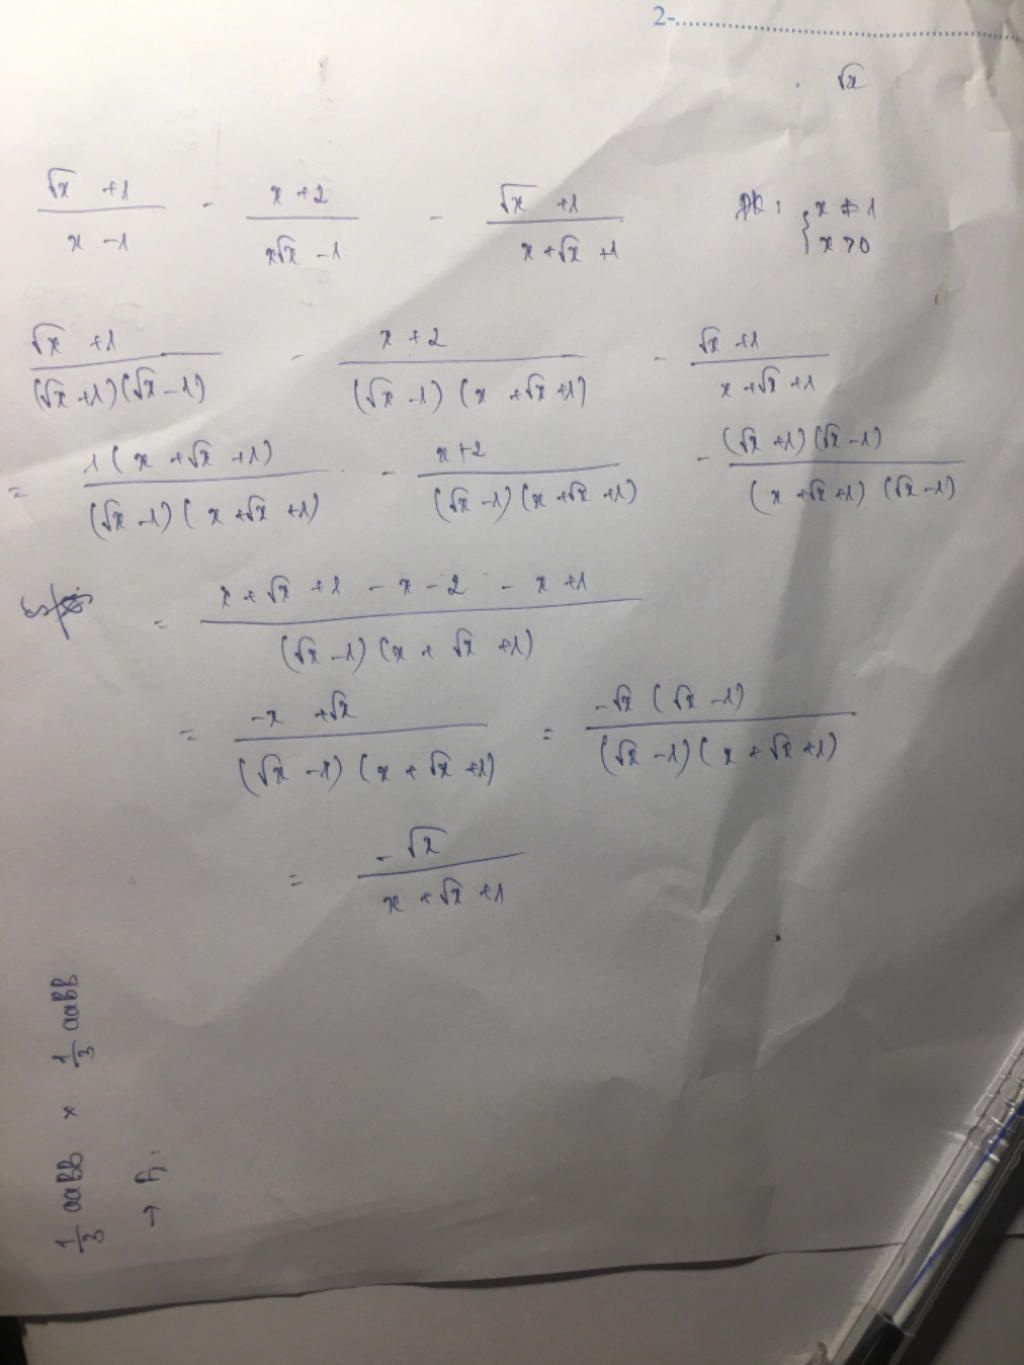 2-
√x
(√x + 1)/(x - 1) - (x + 2)/(x√x - 1) - (√x + 1)/(x + √x + 1) ĐK: { x ≠ 1
x > 0
(√x + 1)/((√x + 1)(√x - 1)) - (x + 2)/((√x - 1)(x + √x + 1)) - (√x + 1)/(x + √x + 1)
= 1(x + √x + 1)/((√x - 1)(x + √x + 1)) - (x + 2)/((√x - 1)(x + √x + 1)) - (√x + 1)(√x - 1)/((x + √x + 1)(√x - 1))
= (x + √x + 1 - x - 2 - x + 1)/((√x - 1)(x + √x + 1))
= (-x + √x)/((√x - 1)(x + √x + 1)) = -√x(√x - 1)/((√x - 1)(x + √x + 1))
= -√x/(x + √x + 1)
1/3 aaBB × 1/3 aaBB
→ F₁: